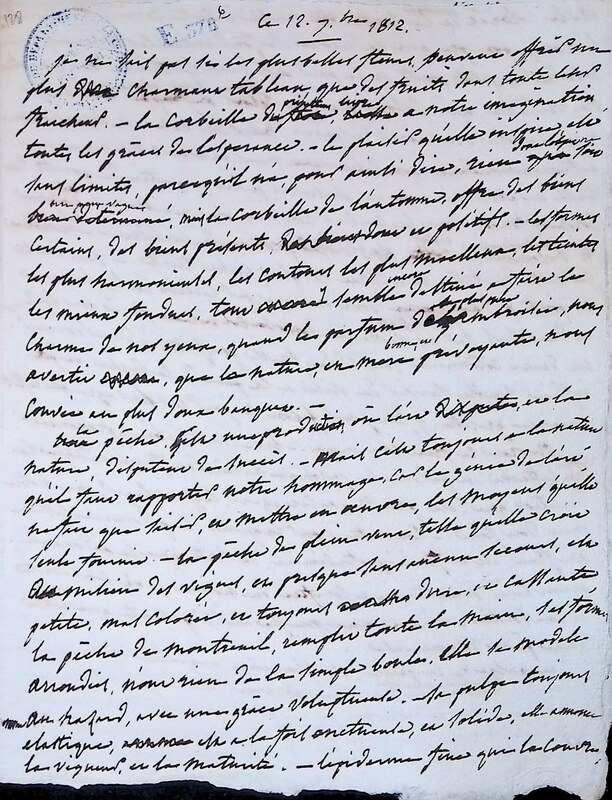 128
E. 378
Ce 12. 7.bre 1812.
je ne sais pas si les plus belles fleurs, peuvent offrir un
plus charmant tableau, que des fruits dans toute leur
fraicheur. – la Corbeille du printems livre a notre imagination
toutes les grâces de l'esperance. – le plaisir qu'elle inspire, est
sans limites, parcequ'il n'a pour ainsi dire, rien
mais la corbeille de l'automne, offre des biens
certains, des biens présents, et positifs. – les formes
les plus harmonieuses, les contours les plus moelleux, les teintes
les mieux fondues, tout semble destiné a faire le
charme de nos yeux, quand les parfums de ambroisie, nous
avertit que la nature, en bonne et mere prévoyante, nous
convie au plus doux banquet. –
la pêche, est une production, où l'art et la
nature disputent de succès. – mais c'est toujours a la nature
qu'il faut rapporter notre hommage, car le génie de l'art
n'est que saisir, et mettre en oeuvre, les moyens qu'elle
seule fournit. – la pêche de plein vent, telle qu'elle croit
au milieu des vignes, et presque sans aucun secours, est
petite, mal colorée, et toujours dure, et cassante
la pêche de montreuil, remplit toute la main, ses formes
arrondies, n'ont rien de la simple boule. Elle se modele
au hazard, avec une grâce voluptueuse. – sa pulpe toujours
elastique, est a la fois onctueuse, et solide, elle annonce
la vigueur, et la maturité. – l'épiderme fine qui la couvre